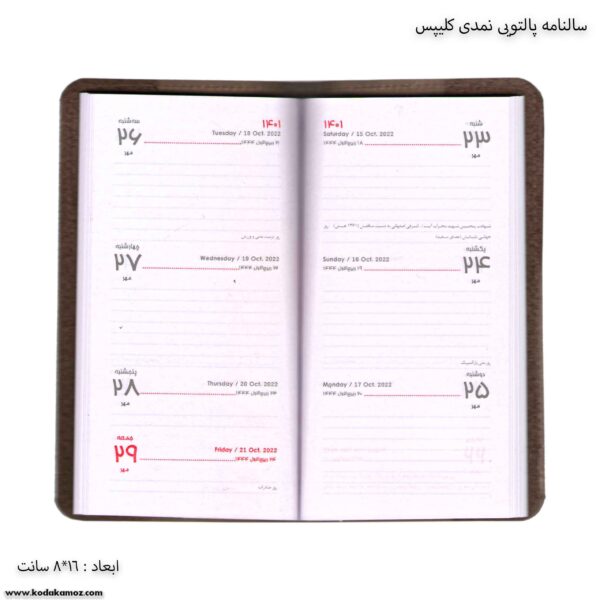 سالنامه پالتویی نمدی کلیپس
۱۴۰۱
شنبه
۲۳
مهر
Saturday / 15 Oct. 2022
۱۸ ربیع‌الاول ۱۴۴۴
یکشنبه
۲۴
مهر
Sunday / 16 Oct. 2022
۱۹ ربیع‌الاول ۱۴۴۴
دوشنبه
۲۵
مهر
Monday / 17 Oct. 2022
۲۰ ربیع‌الاول ۱۴۴۴
۱۴۰۱
سه شنبه
۲۶
مهر
Tuesday / 18 Oct. 2022
۲۱ ربیع‌الاول ۱۴۴۴
روز تربیت بدنی و ورزش
چهارشنبه
۲۷
مهر
Wednesday / 19 Oct. 2022
۲۲ ربیع‌الاول ۱۴۴۴
پنجشنبه
۲۸
مهر
Thursday / 20 Oct. 2022
۲۳ ربیع‌الاول ۱۴۴۴
جمعه
۲۹
مهر
Friday / 21 Oct. 2022
۲۴ ربیع‌الاول ۱۴۴۴
روز صادرات
ابعاد : ۱۶*۸ سانت
www.kodakamoz.com